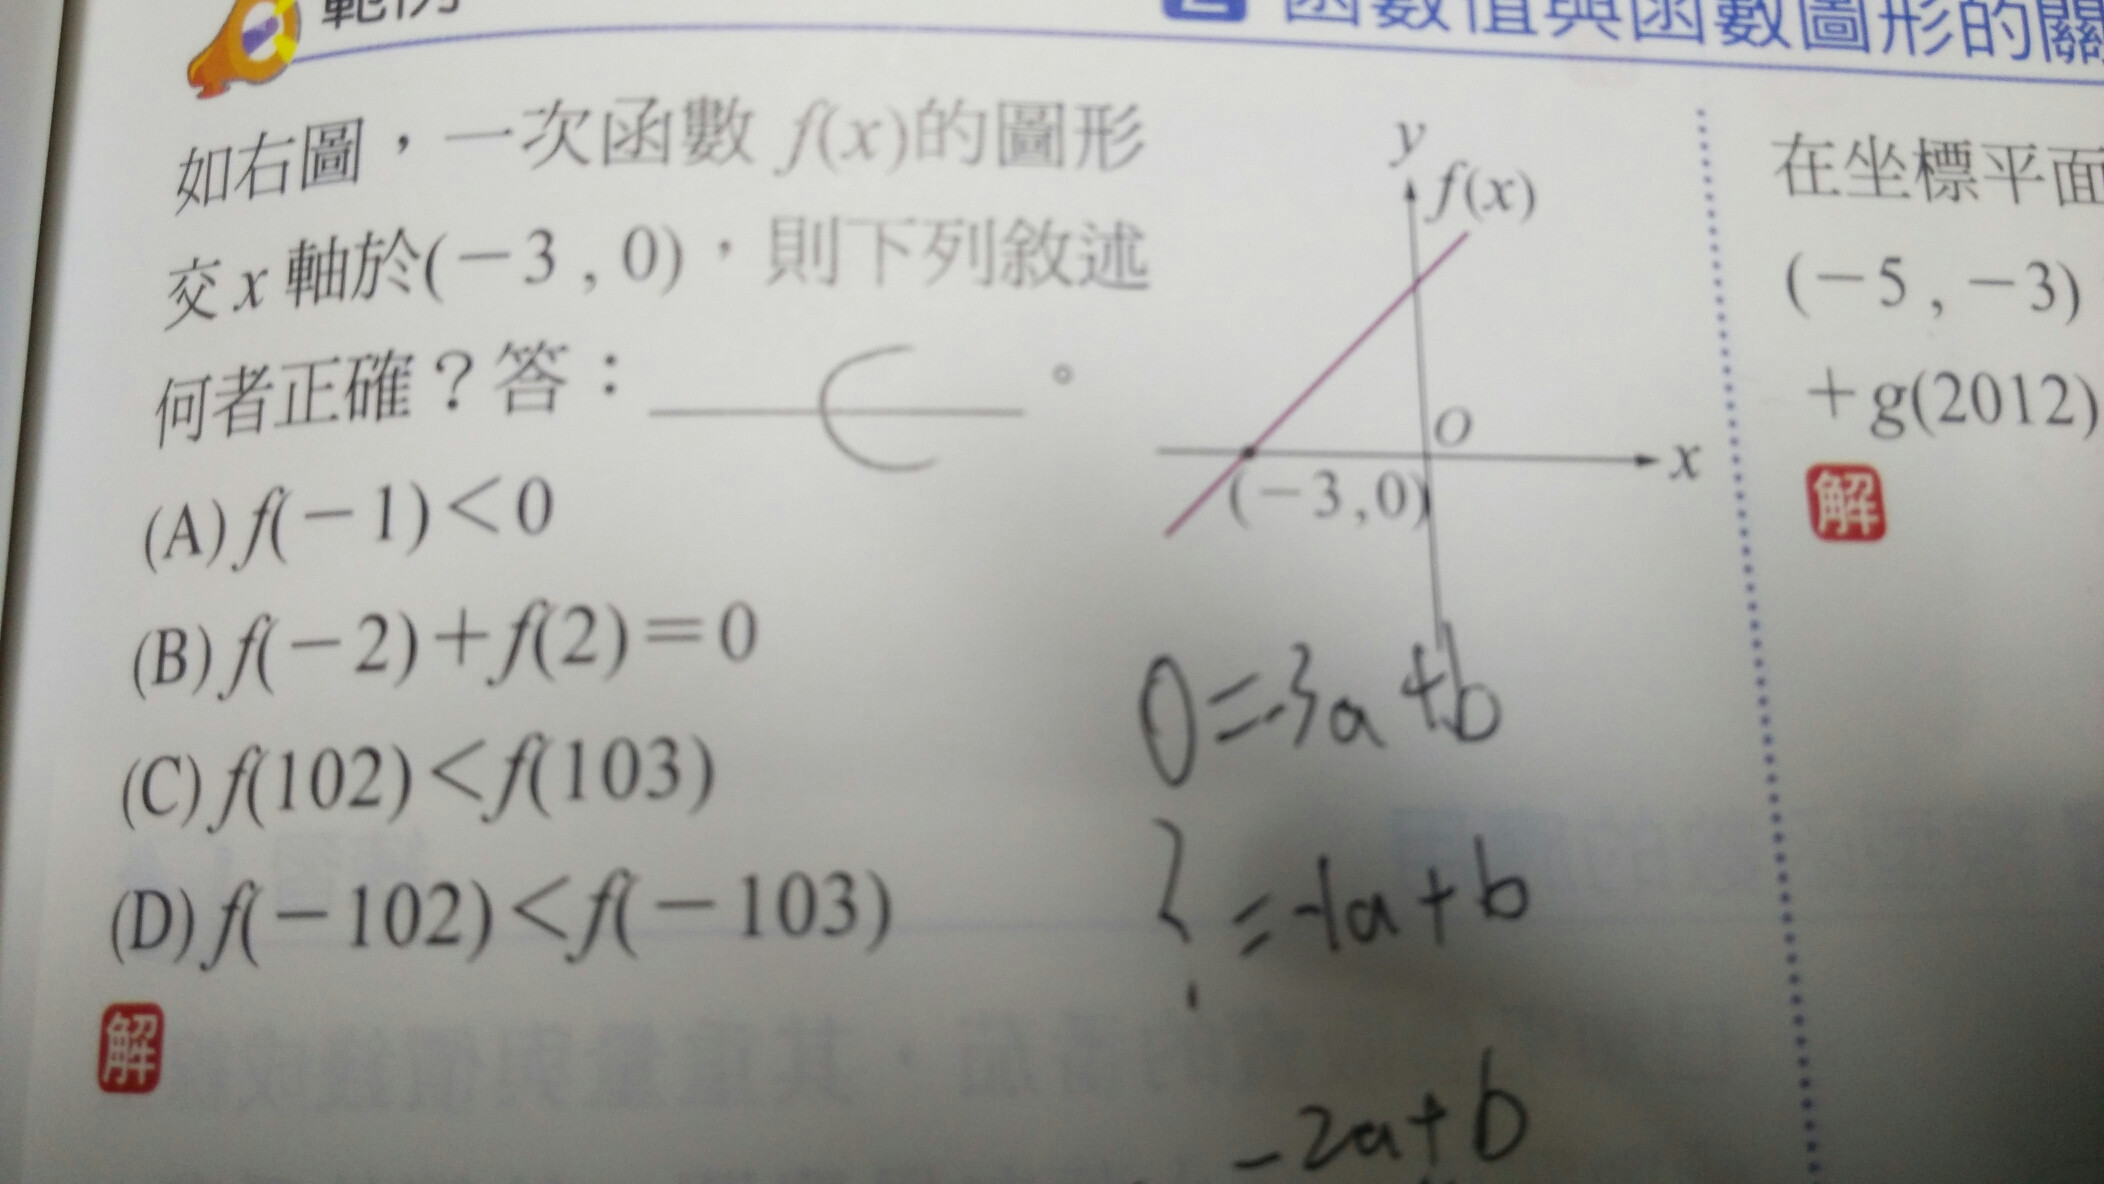 範例
2 函數值與函數圖形的關
如右圖，一次函數 f(x)的圖形
交 x 軸於(－3 , 0)，則下列敘述
何者正確？答：C。
(A) f(－1)＜0
(B) f(－2)＋f(2)＝0
(C) f(102)＜f(103)
(D) f(－102)＜f(－103)
解
y
f(x)
O
x
(－3,0)
0=-3a+b
? =-1a+b
-2a+b
在坐標平面
(－5 , －3)
＋g(2012)
解